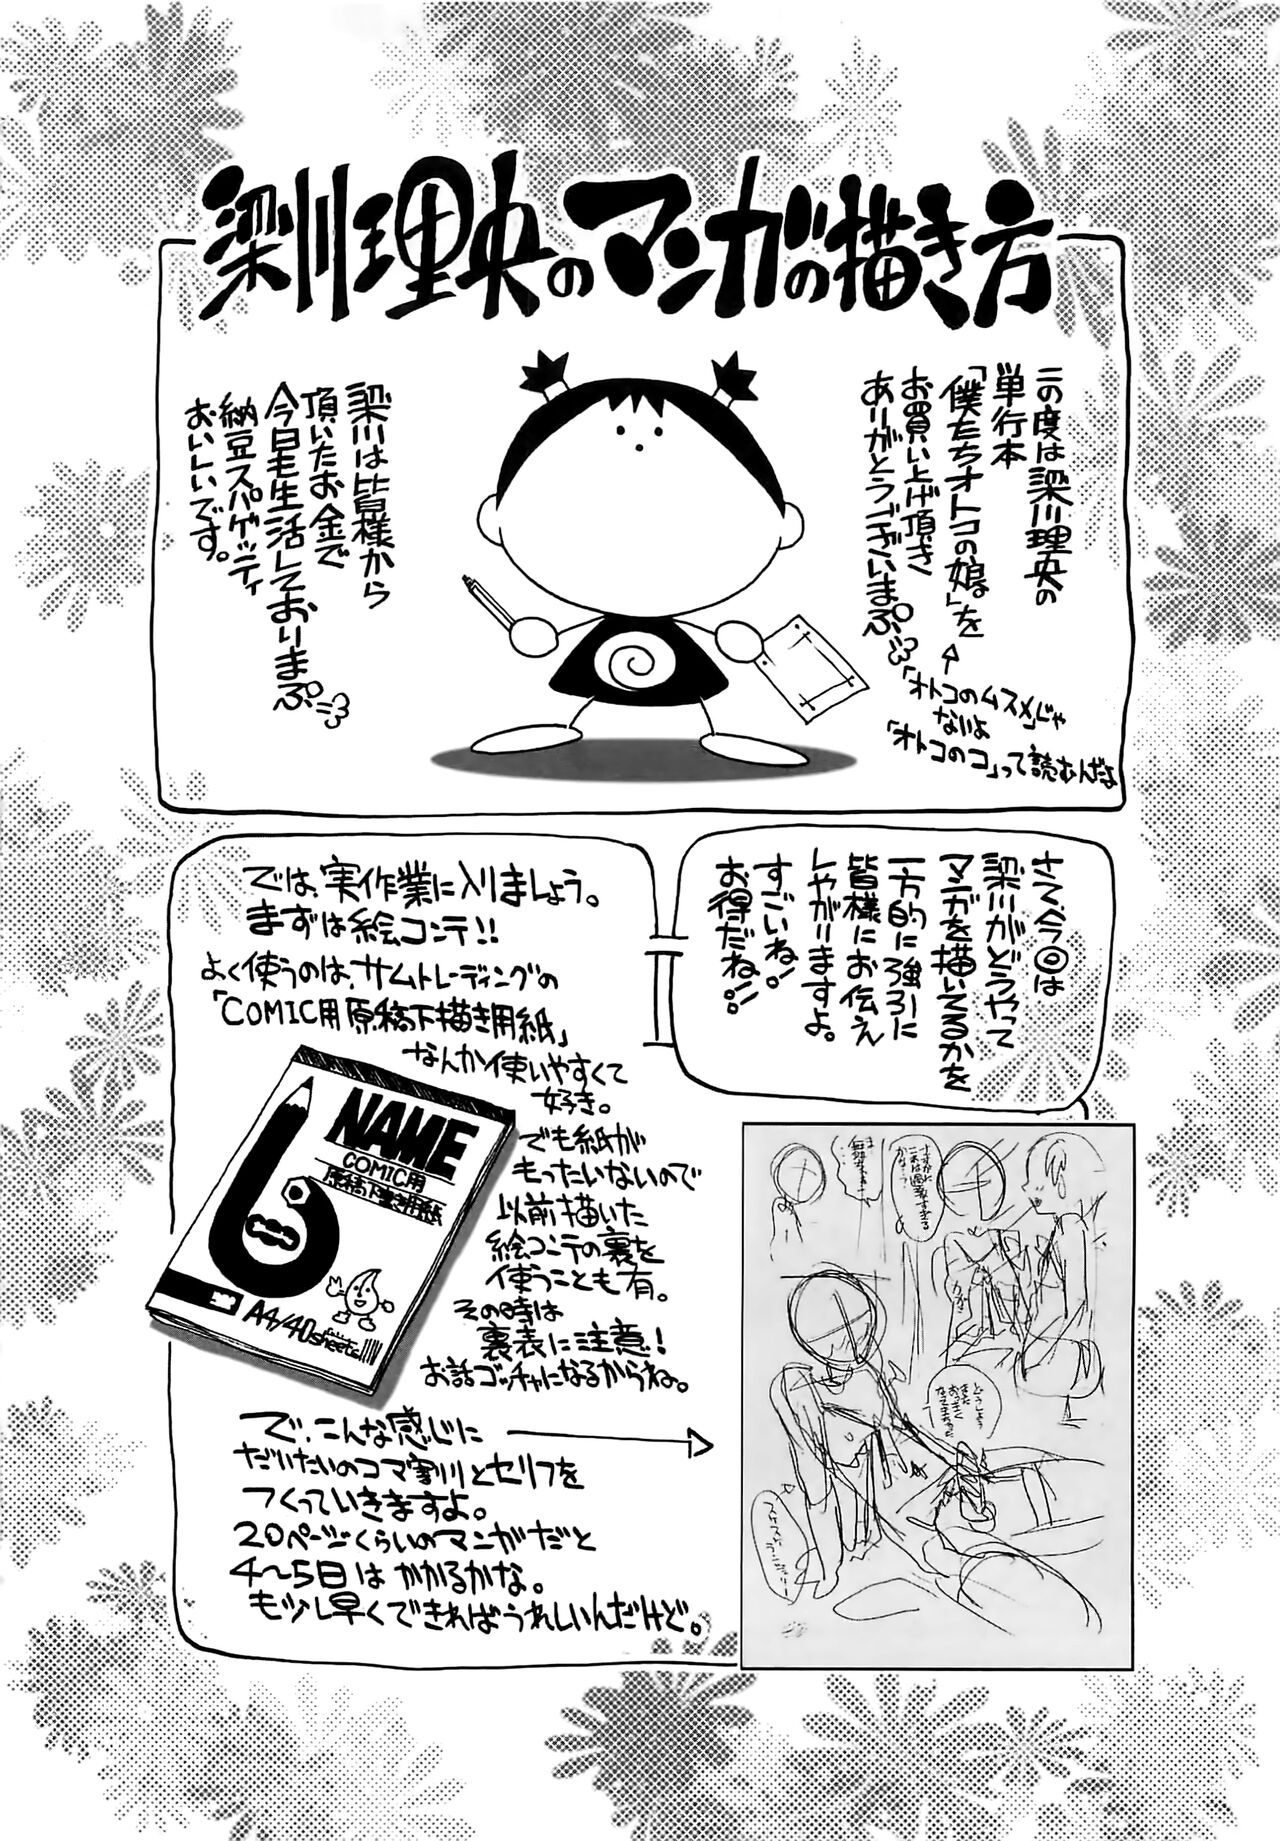 梁川理央のマンガの描き方
この度は梁川理央の
単行本
「僕たちオトコの娘」を
お買い上げ頂き
ありがとうございまぷ
「オトコのムスメ」じゃ
ないよ
「オトコのコ」って読むんだよ
梁川は皆様から
頂いたお金で
今日も生活しておりまぷ
納豆スパゲッティ
おいしいです。
さて、今回は
梁川がどうやって
マンガを描いてるかを
一方的に強引に
皆様にお伝え
しやがりますよ。
すごいね!
お得だね!!
では、実作業に入りましょう。
まずは絵コンテ!!
よく使うのは、サムトレーディングの
「COMIC用原稿下描き用紙」
なんか使いやすくて
好き。
でも紙が
もったいないので
以前描いた
絵コンテの裏を
使うことも有。
その時は
裏表に注意!
お話ゴッチャになるからね。
NAME
COMIC用
原稿下書き用紙
A4/40sheets
で、こんな感じに
だいたいのコマ割りとセリフを
つくっていきますよ。
20ページくらいのマンガだと
4〜5日はかかるかな。
もう少し早くできればうれしいんだけど。
どうしよう
また
おっきく
なってきちゃった